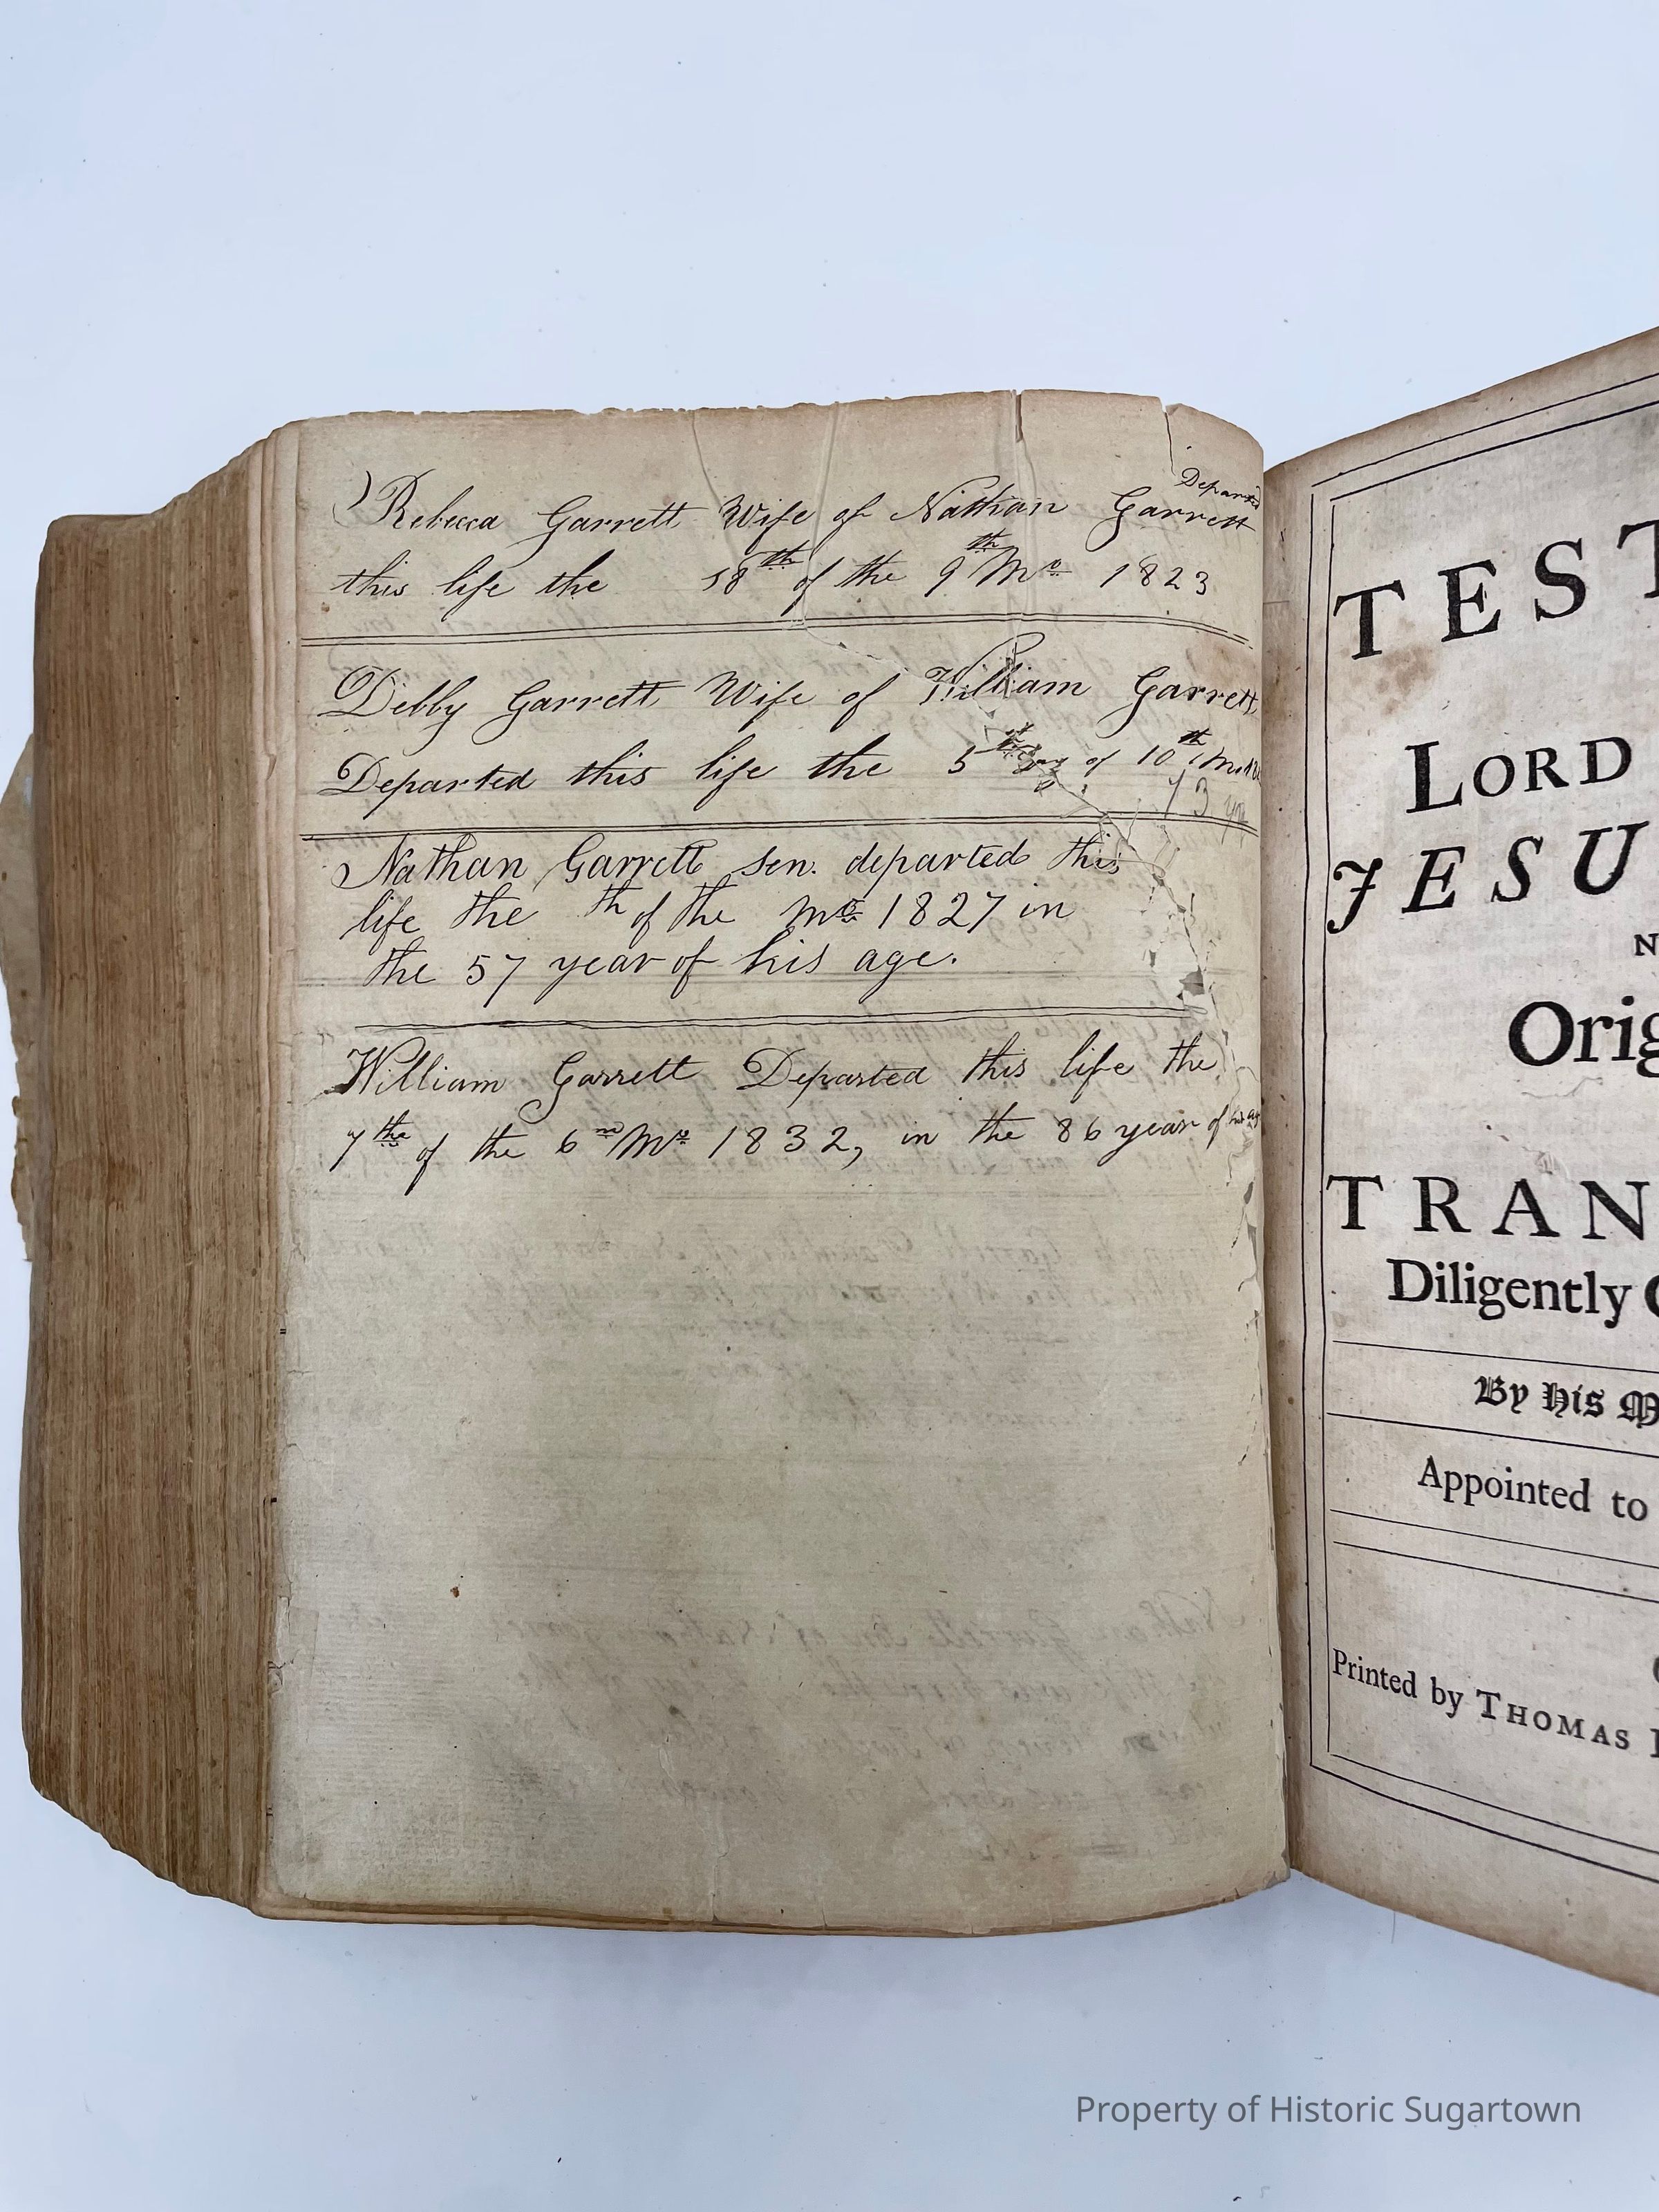 Departed
Rebecca Garrett Wife of Nathan Garrett
this life the 18th of the 9th Mo 1823
Debby Garrett Wife of William Garrett
Departed this life the 5th Day of 10th
73
Nathan Garrett sen. departed this
life the th of the mo 1827 in
the 57 year of his age.
William Garrett Departed this life the
7th of the 6 Mo 1832, in the 86 year of his age
TEST
LORD
JESU
N
Orig
TRAN
Diligently
By His M
Appointed to
Printed by THOMAS
Property of Historic Sugartown